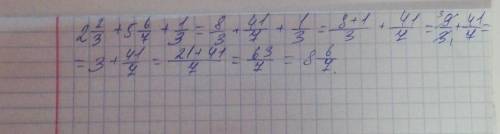 2 2/3 + 5 6/7 + 1/3 = 8/3 + 41/7 + 1/3 = 8+1/3 + 41/7 = ³9/3₁ + 41/7 =
= 3 + 41/7 = 21+41/7 = 63/7 = 8 6/7